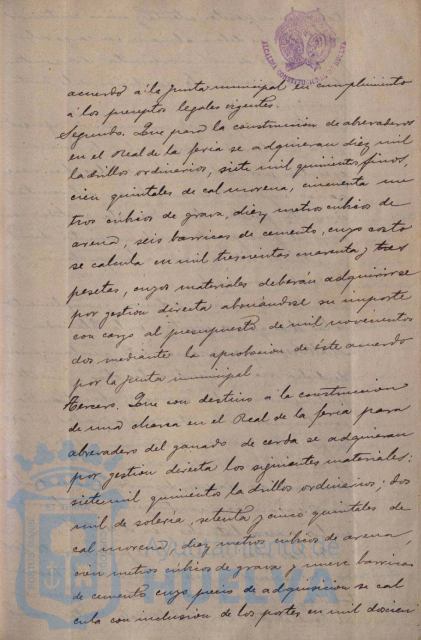 ALCALDIA CONSTITUCIONAL HUELVA
acuerdo á la Junta municipal en cumplimiento
á los preceptos legales vigentes.
Segundo. Que para la construccion de abrevaderos
en el Real de la feria se adquieran diez mil
ladrillos ordinarios, siete mil quinientos finos,
cien quintales de cal morena, cincuenta me
tros cúbicos de grava, diez metros cúbicos de
arena, seis barricas de cemento, cuyo costo
se calcula en mil trescientas cuarenta y tres
pesetas, cuyos materiales deberán adquirirse
por gestión directa abonándose su importe
con cargo al presupuesto de mil novecientos
dos mediante la aprobacion de éste acuerdo
por la Junta municipal
Tercero. Que con destino á la construccion
de una charca en el Real de la feria para
abrevadero del ganado de cerda se adquieran
por gestión directa los siguientes materiales:
siete mil quinientos ladrillos ordinarios; dos
mil de solería, setenta y cinco quintales de
cal morena, diez metros cúbicos de arena,
cien metros cúbicos de grava y nueve barricas
de cemento cuyo precio de adquisicion se cal
cula con inclusion de los portes en mil doscien
Ayuntamiento de
HUELVA